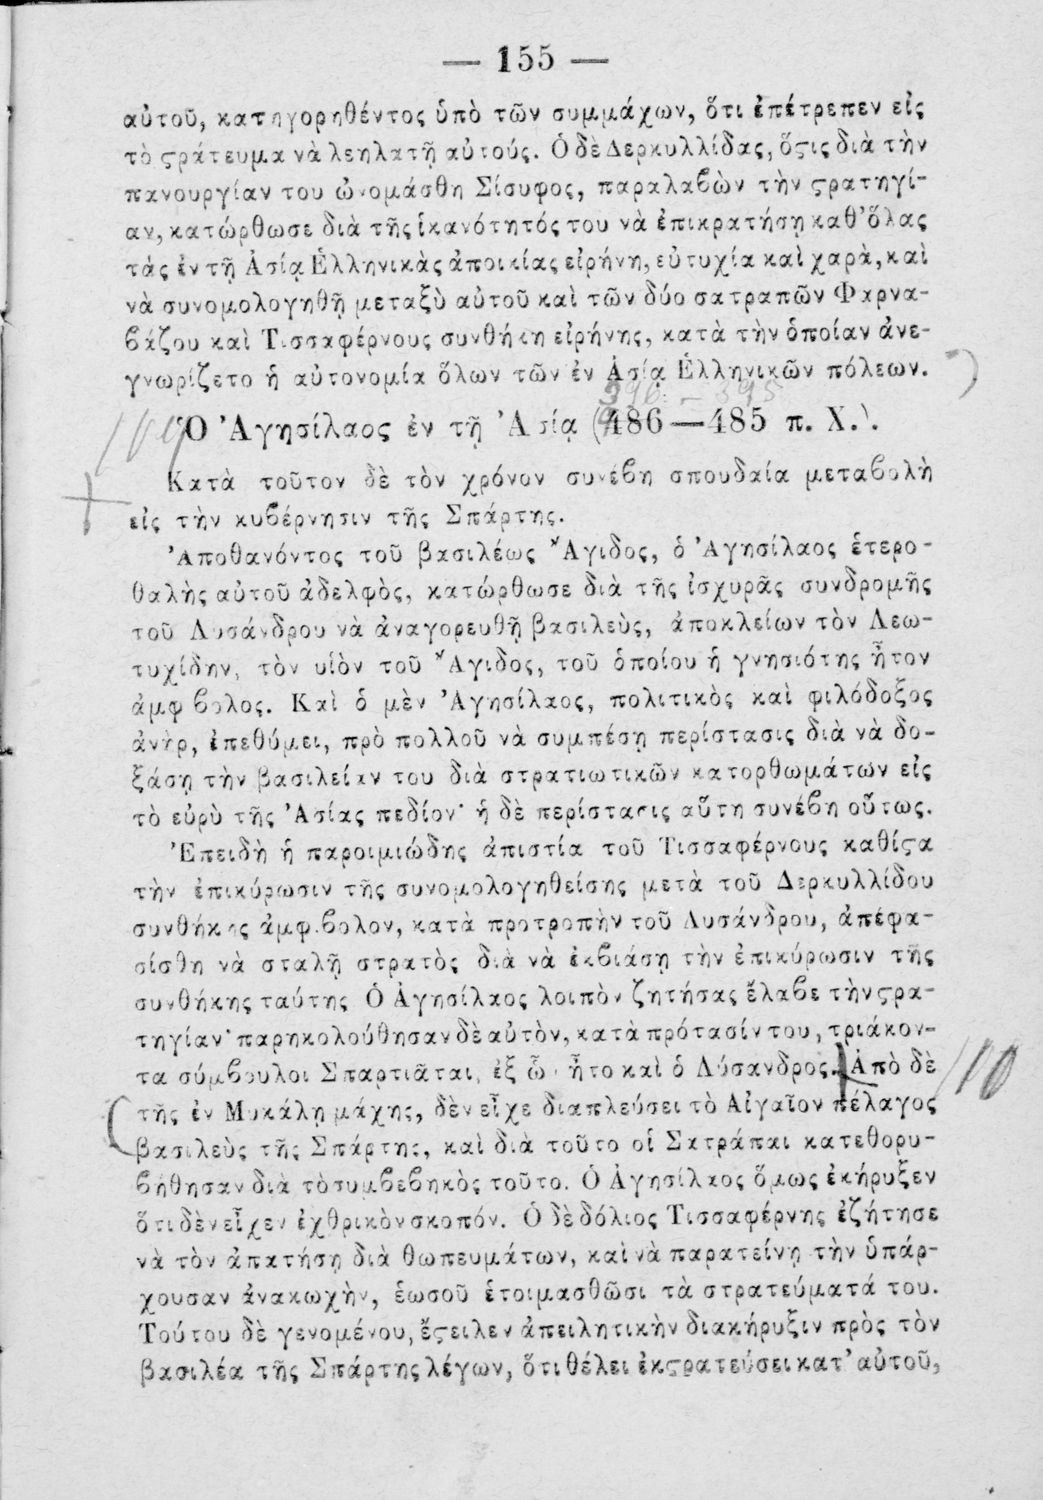 — 155 —
αὐτοῦ, κατηγορηθέντος ὑπὸ τῶν συμμάχων, ὅτι ἐπέτρεπεν εἰς
τὸ ϛράτευμα νὰ λεηλατῇ αὐτούς. Ὁ δὲ Δερκυλλίδας, ὅϛις διὰ τὴν
πανουργίαν του ὠνομάσθη Σίσυφος, παραλαβὼν τὴν ϛρατηγί-
αν, κατώρθωσε διὰ τῆς ἱκανότητός του νὰ ἐπικρατήσῃ καθ' ὅλας
τὰς ἐν τῇ Ἀσίᾳ Ἑλληνικὰς ἀποικίας εἰρήνη, εὐτυχία καὶ χαρὰ, καὶ
νὰ συνομολογηθῇ μεταξὺ αὐτοῦ καὶ τῶν δύο σατραπῶν Φαρνα-
βάζου καὶ Τισσαφέρνους συνθήκη εἰρήνης, κατὰ τὴν ὁποίαν ἀνε-
γνωρίζετο ἡ αὐτονομία ὅλων τῶν ἐν Ἀσίᾳ Ἑλληνικῶν πόλεων.
396 - 395
109 Ὁ Ἀγησίλαος ἐν τῇ Ἀσίᾳ (486—485 π. Χ.).
Κατὰ τοῦτον δὲ τὸν χρόνον συνέβη σπουδαία μεταβολὴ
εἰς τὴν κυβέρνησιν τῆς Σπάρτης.
Ἀποθανόντος τοῦ βασιλέως Ἄγιδος, ὁ Ἀγησίλαος ἑτερο-
θαλὴς αὐτοῦ ἀδελφὸς, κατώρθωσε διὰ τῆς ἰσχυρᾶς συνδρομῆς
τοῦ Λυσάνδρου νὰ ἀναγορευθῇ βασιλεὺς, ἀποκλείων τὸν Λεω-
τυχίδην, τὸν υἱὸν τοῦ Ἄγιδος, τοῦ ὁποίου ἡ γνησιότης ἦτον
ἀμφίβολος. Καὶ ὁ μὲν Ἀγησίλαος, πολιτικὸς καὶ φιλόδοξος
ἀνὴρ, ἐπεθύμει, πρὸ πολλοῦ νὰ συμπέσῃ περίστασις διὰ νὰ δο-
ξάσῃ τὴν βασιλείαν του διὰ στρατιωτικῶν κατορθωμάτων εἰς
τὸ εὐρὺ τῆς Ἀσίας πεδίον· ἡ δὲ περίστασις αὕτη συνέβη οὕτως.
Ἐπειδὴ ἡ παροιμιώδης ἀπιστία τοῦ Τισσαφέρνους καθίϛα
τὴν ἐπικύρωσιν τῆς συνομολογηθείσης μετὰ τοῦ Δερκυλλίδου
συνθήκης ἀμφίβολον, κατὰ προτροπὴν τοῦ Λυσάνδρου, ἀπέφα-
σίσθη νὰ σταλῇ στρατὸς διὰ νὰ ἐκβιάσῃ τὴν ἐπικύρωσιν τῆς
συνθήκης ταύτης Ὁ Ἀγησίλαος λοιπὸν ζητήσας ἔλαβε τὴν ϛρα-
τηγίαν· παρηκολούθησαν δὲ αὐτὸν, κατὰ πρότασίν του, τριάκον-
τα σύμβουλοι Σπαρτιᾶται, ἐξ ὧν ἦτο καὶ ὁ Λύσανδρος. Ἀπὸ δὲ 110
τῆς ἐν Μυκάλῃ μάχης, δὲν εἶχε διαπλεύσει τὸ Αἰγαῖον πέλαγος
βασιλεὺς τῆς Σπάρτης, καὶ διὰ τοῦτο οἱ Σατράπαι κατεθορυ-
βήθησαν διὰ τὸ συμβεβηκὸς τοῦτο. Ὁ Ἀγησίλαος ὅμως ἐκήρυξεν
ὅτι δὲν εἶχεν ἐχθρικὸν σκοπόν. Ὁ δὲ δόλιος Τισσαφέρνης ἐζήτησε
νὰ τὸν ἀπατήσῃ διὰ θωπευμάτων, καὶ νὰ παρατείνῃ τὴν ὑπάρ-
χουσαν ἀνακωχὴν, ἑωσοῦ ἑτοιμασθῶσι τὰ στρατεύματά του.
Τούτου δὲ γενομένου, ἔϛειλεν ἀπειλητικὴν διακήρυξιν πρὸς τὸν
βασιλέα τῆς Σπάρτης λέγων, ὅτι θέλει ἐκϛρατεύσει κατ' αὐτοῦ,